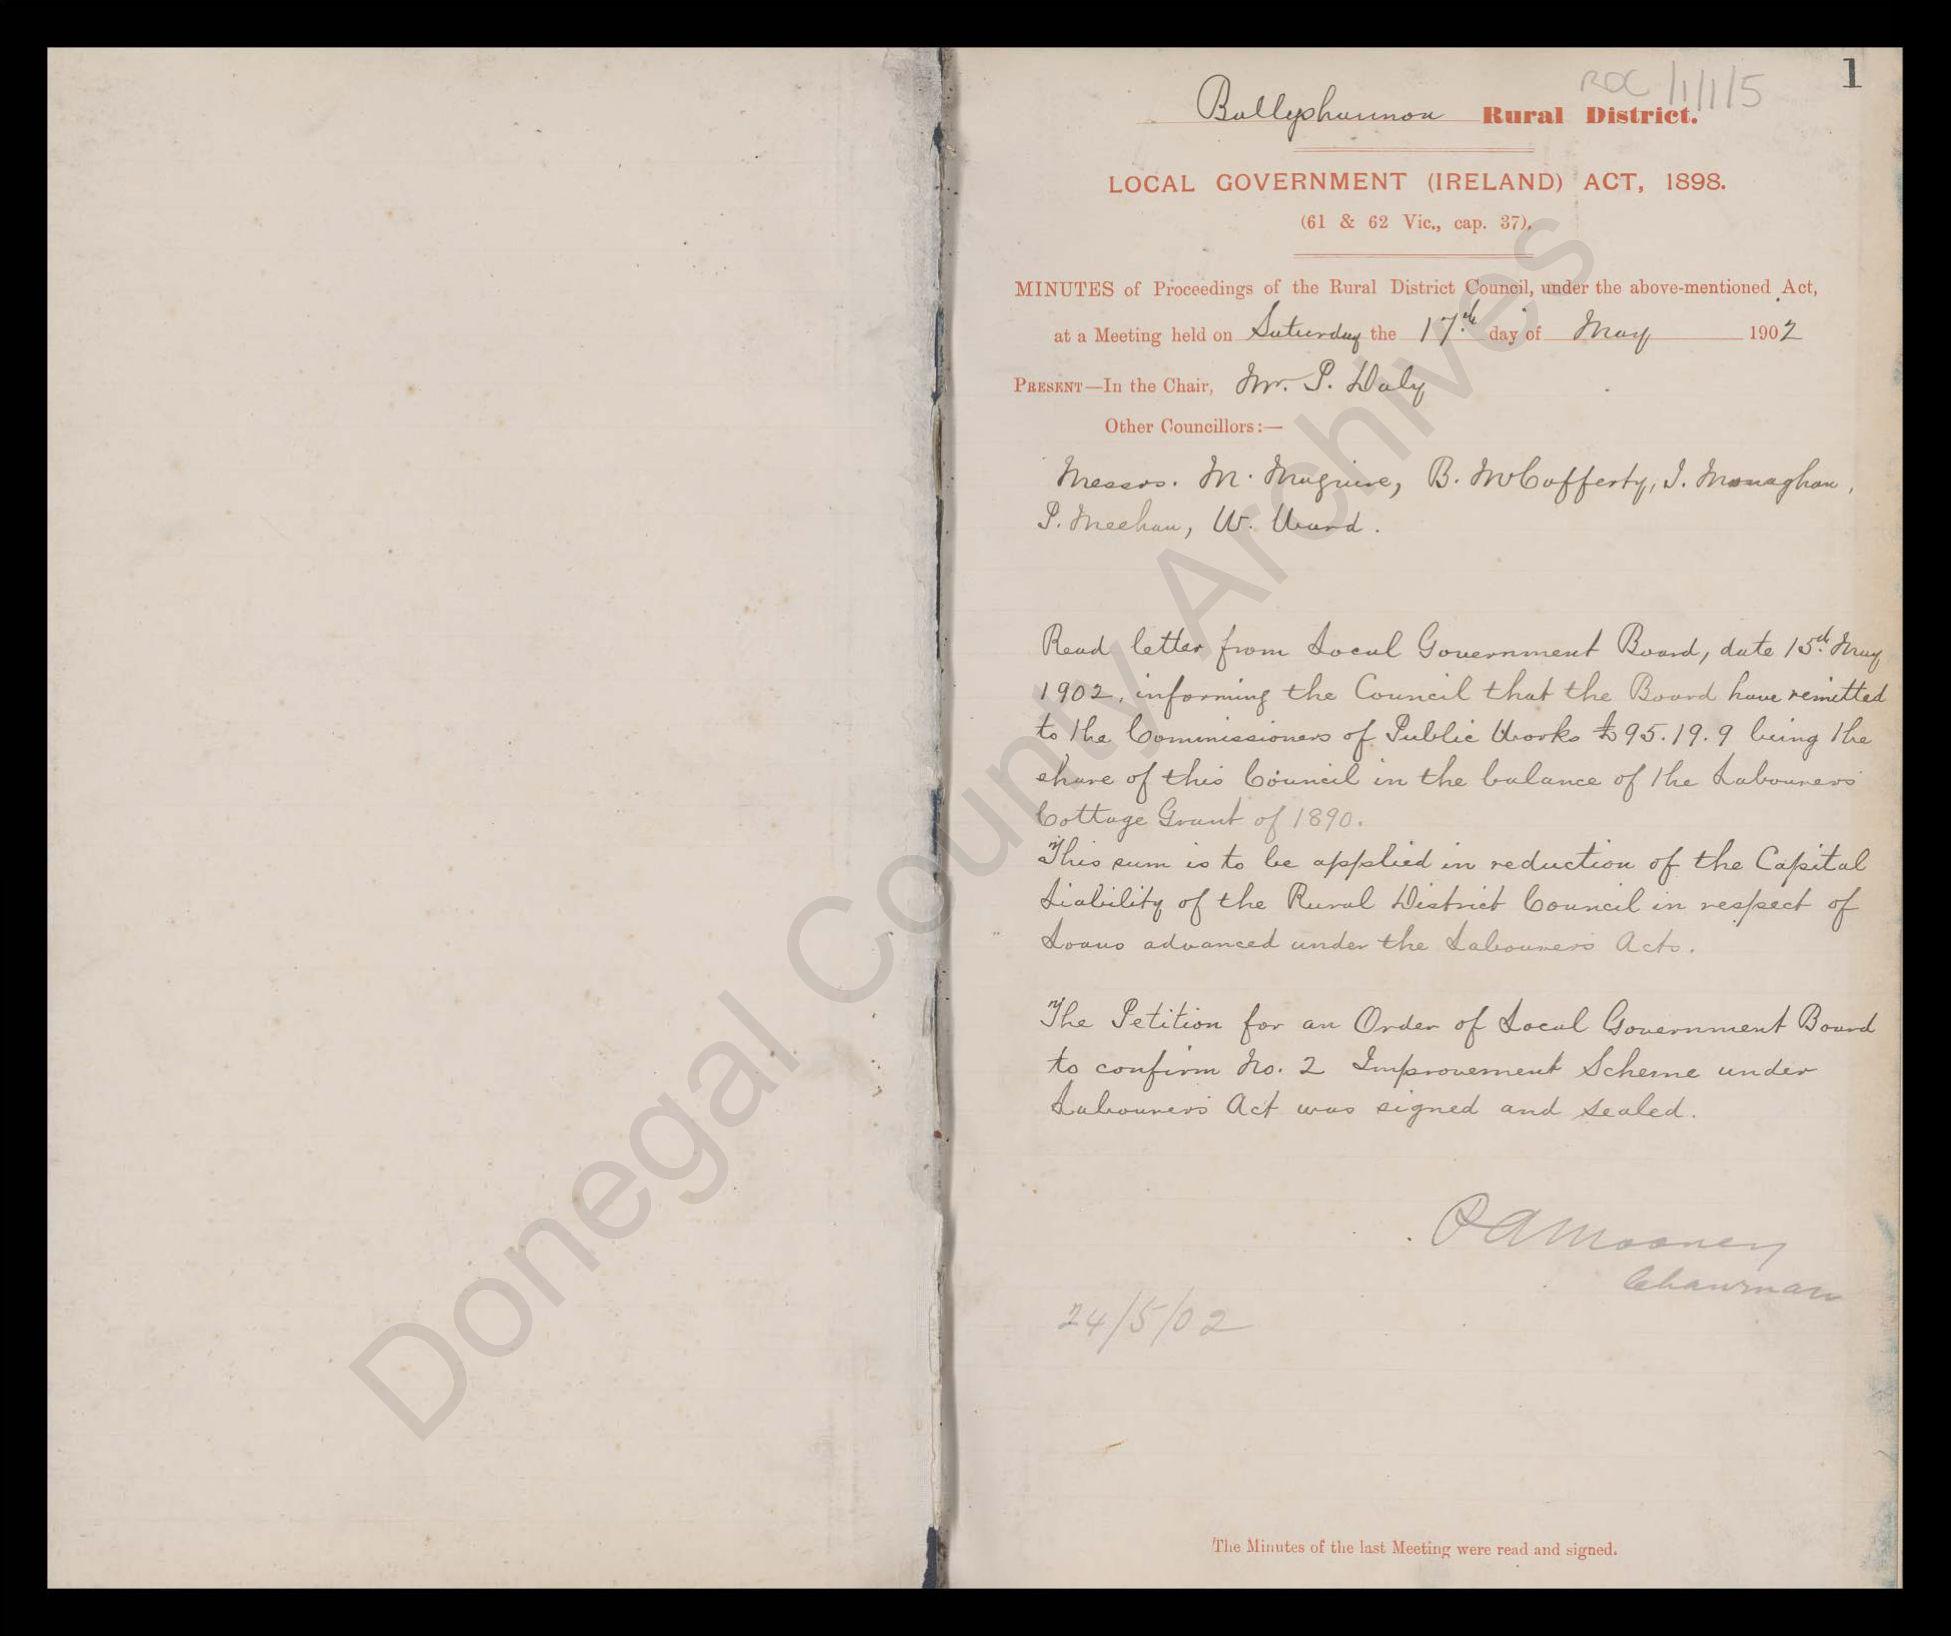 1
RDC /1/1/5
Ballyshannon Rural District.
LOCAL GOVERNMENT (IRELAND) ACT, 1898.
(61 & 62 Vic., cap. 37).
MINUTES of Proceedings of the Rural District Council, under the above-mentioned Act,
at a Meeting held on Saturday the 17th day of May 1902
PRESENT—In the Chair, Mr. P. Daly
Other Councillors:—
Messrs. M. Maguire, B. McCafferty, J. Monaghan,
P. Meehan, W. Ward.
Read letter from Local Government Board, date 15th May
1902, informing the Council that the Board have remitted
to the Commissioners of Public Works £95.19.9 being the
share of this Council in the balance of the Labourers
Cottage Grant of 1890.
This sum is to be applied in reduction of the Capital
Liability of the Rural District Council in respect of
Loans advanced under the Labourers Acts.
The Petition for an Order of Local Government Board
to confirm No. 2 Improvement Scheme under
Labourers Act was signed and sealed.
P A Mooney
Chairman
24/5/02
The Minutes of the last Meeting were read and signed.
Donegal County Archives